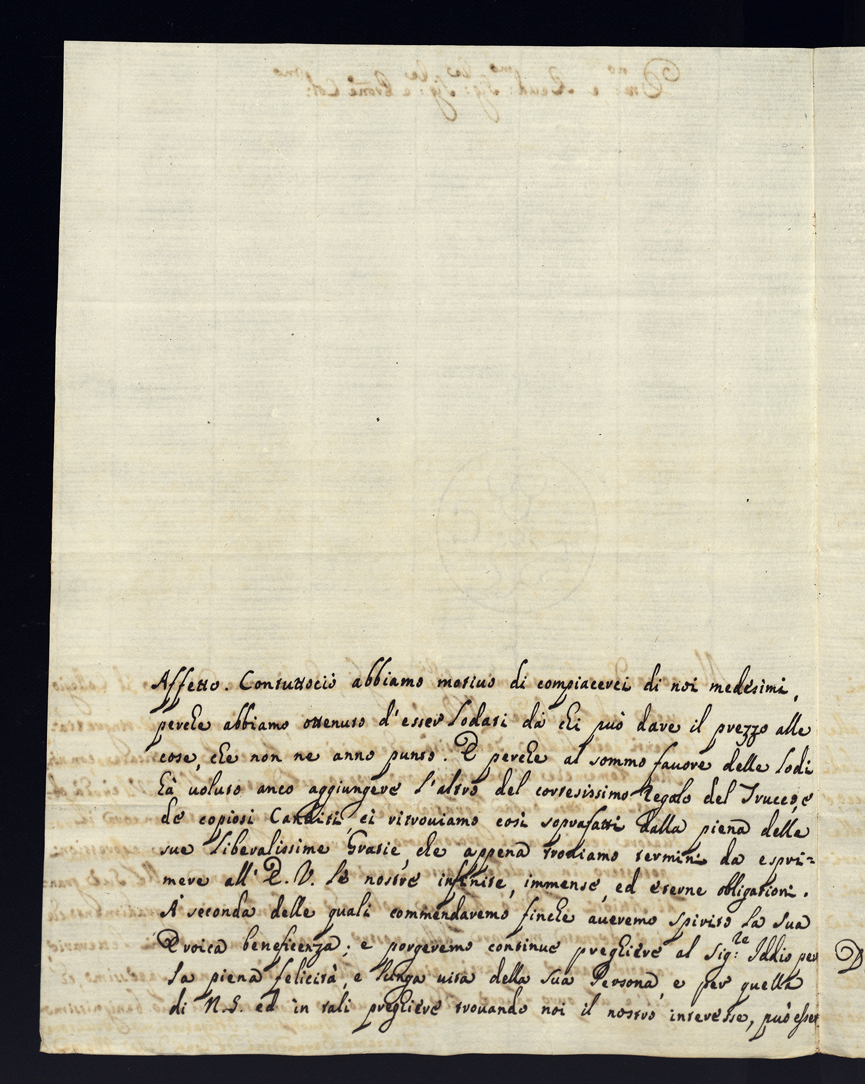 Affetto. Contuttociò abbiamo motivo di compiacerci di noi medesimi,
perche abbiamo ottenuto d'esser lodati dà chi può dare il prezzo alle
cose, che non ne anno punto. E perche al sommo favore delle lodi
hà voluto anco aggiungere l'altro del cortesissimo Regalo del
de copiosi Canditi, ci ritroviamo così soprafatti dalla piena delle
sue liberalissime Gratie, che appena troviamo termini da espri=
mere all' E. V. le nostre infinite, immense, ed eterne obligationi.
A' seconda delle quali commendaremo finche averemo spirito la sua
Eroica beneficenza; e porgeremo continue preghiere al Sig:re Iddio per
la piena felicità, e lunga vita della sua Persona, e per quella
di N.S. ed in tali preghiere trovando noi il nostro interesse, può esser